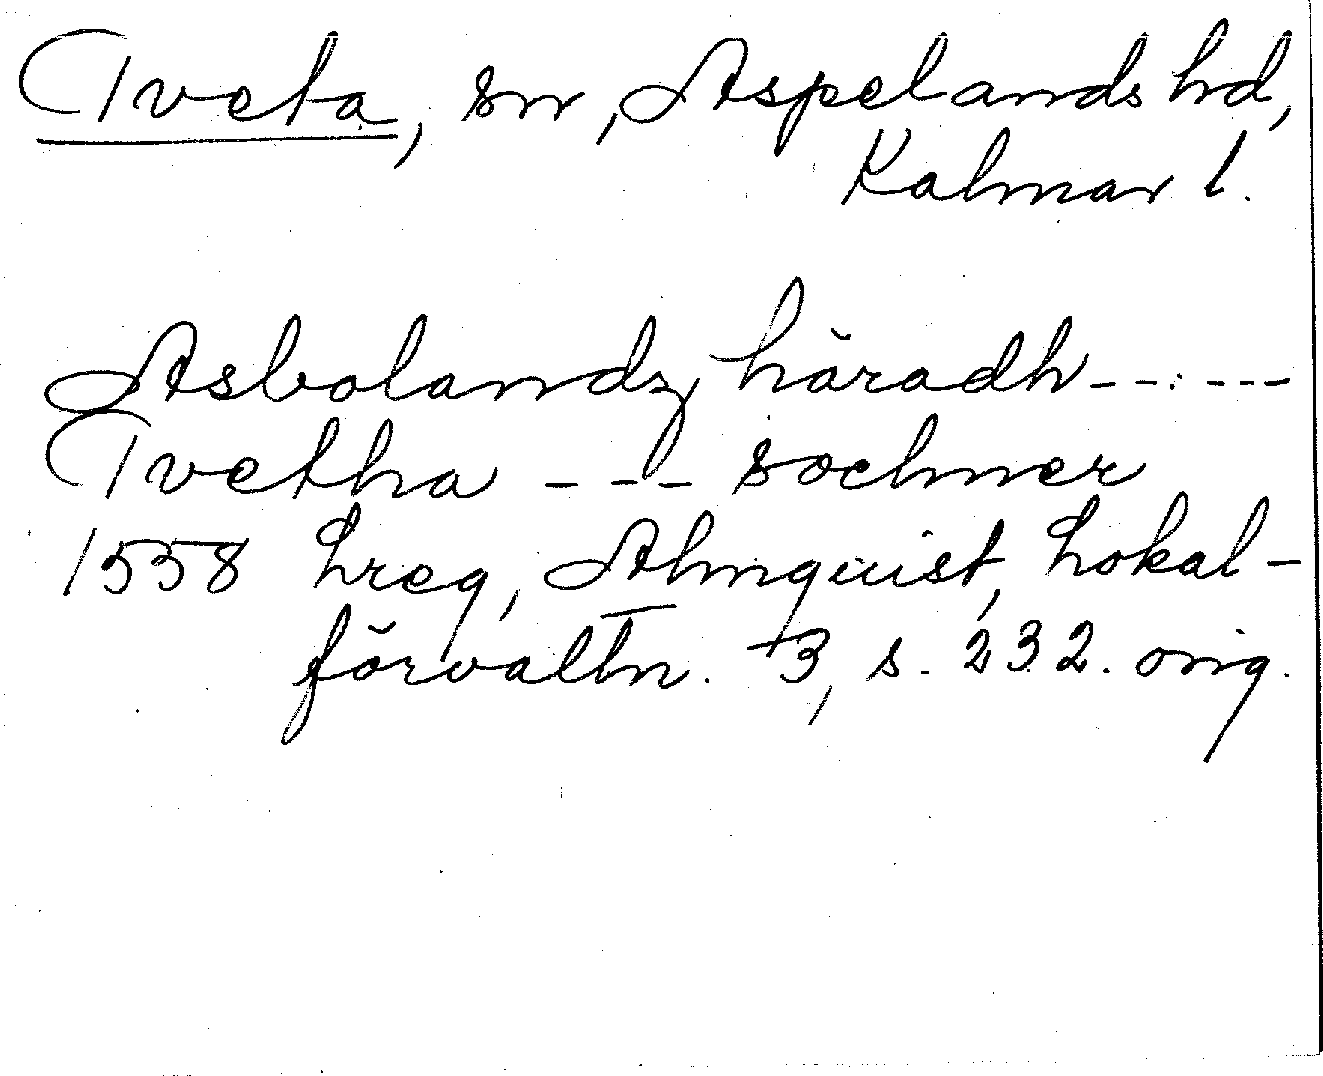 Tveta, sn, Aspelands hd,
Kalmar l.
Asbolandz häradh------
Tvetha --- sochner
1558 hreg, Almquist, Lokal-
förvaltn. 3, s. 232. orig.